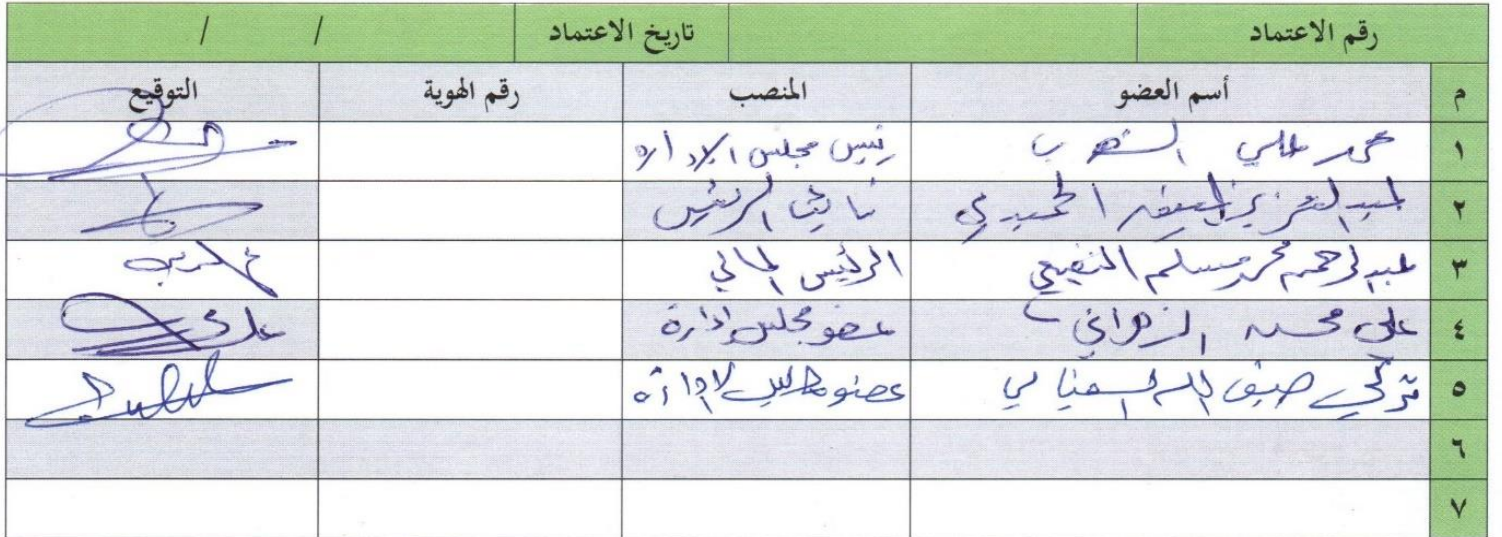 رقم الاعتماد تاريخ الاعتماد / /
م أسم العضو المنصب رقم الهوية التوقيع
١ محمد علي رئيس مجلس الإدارة
٢ عبد العزيز الحميدي نائب الرئيس
٣ عبد الرحمن محمد مسلم النفيعي الرئيس المالي
٤ علي محسن الزهراني عضو مجلس إدارة
٥ تركي ضيف الله السفياني عضو مجلس الإدارة
٦
٧